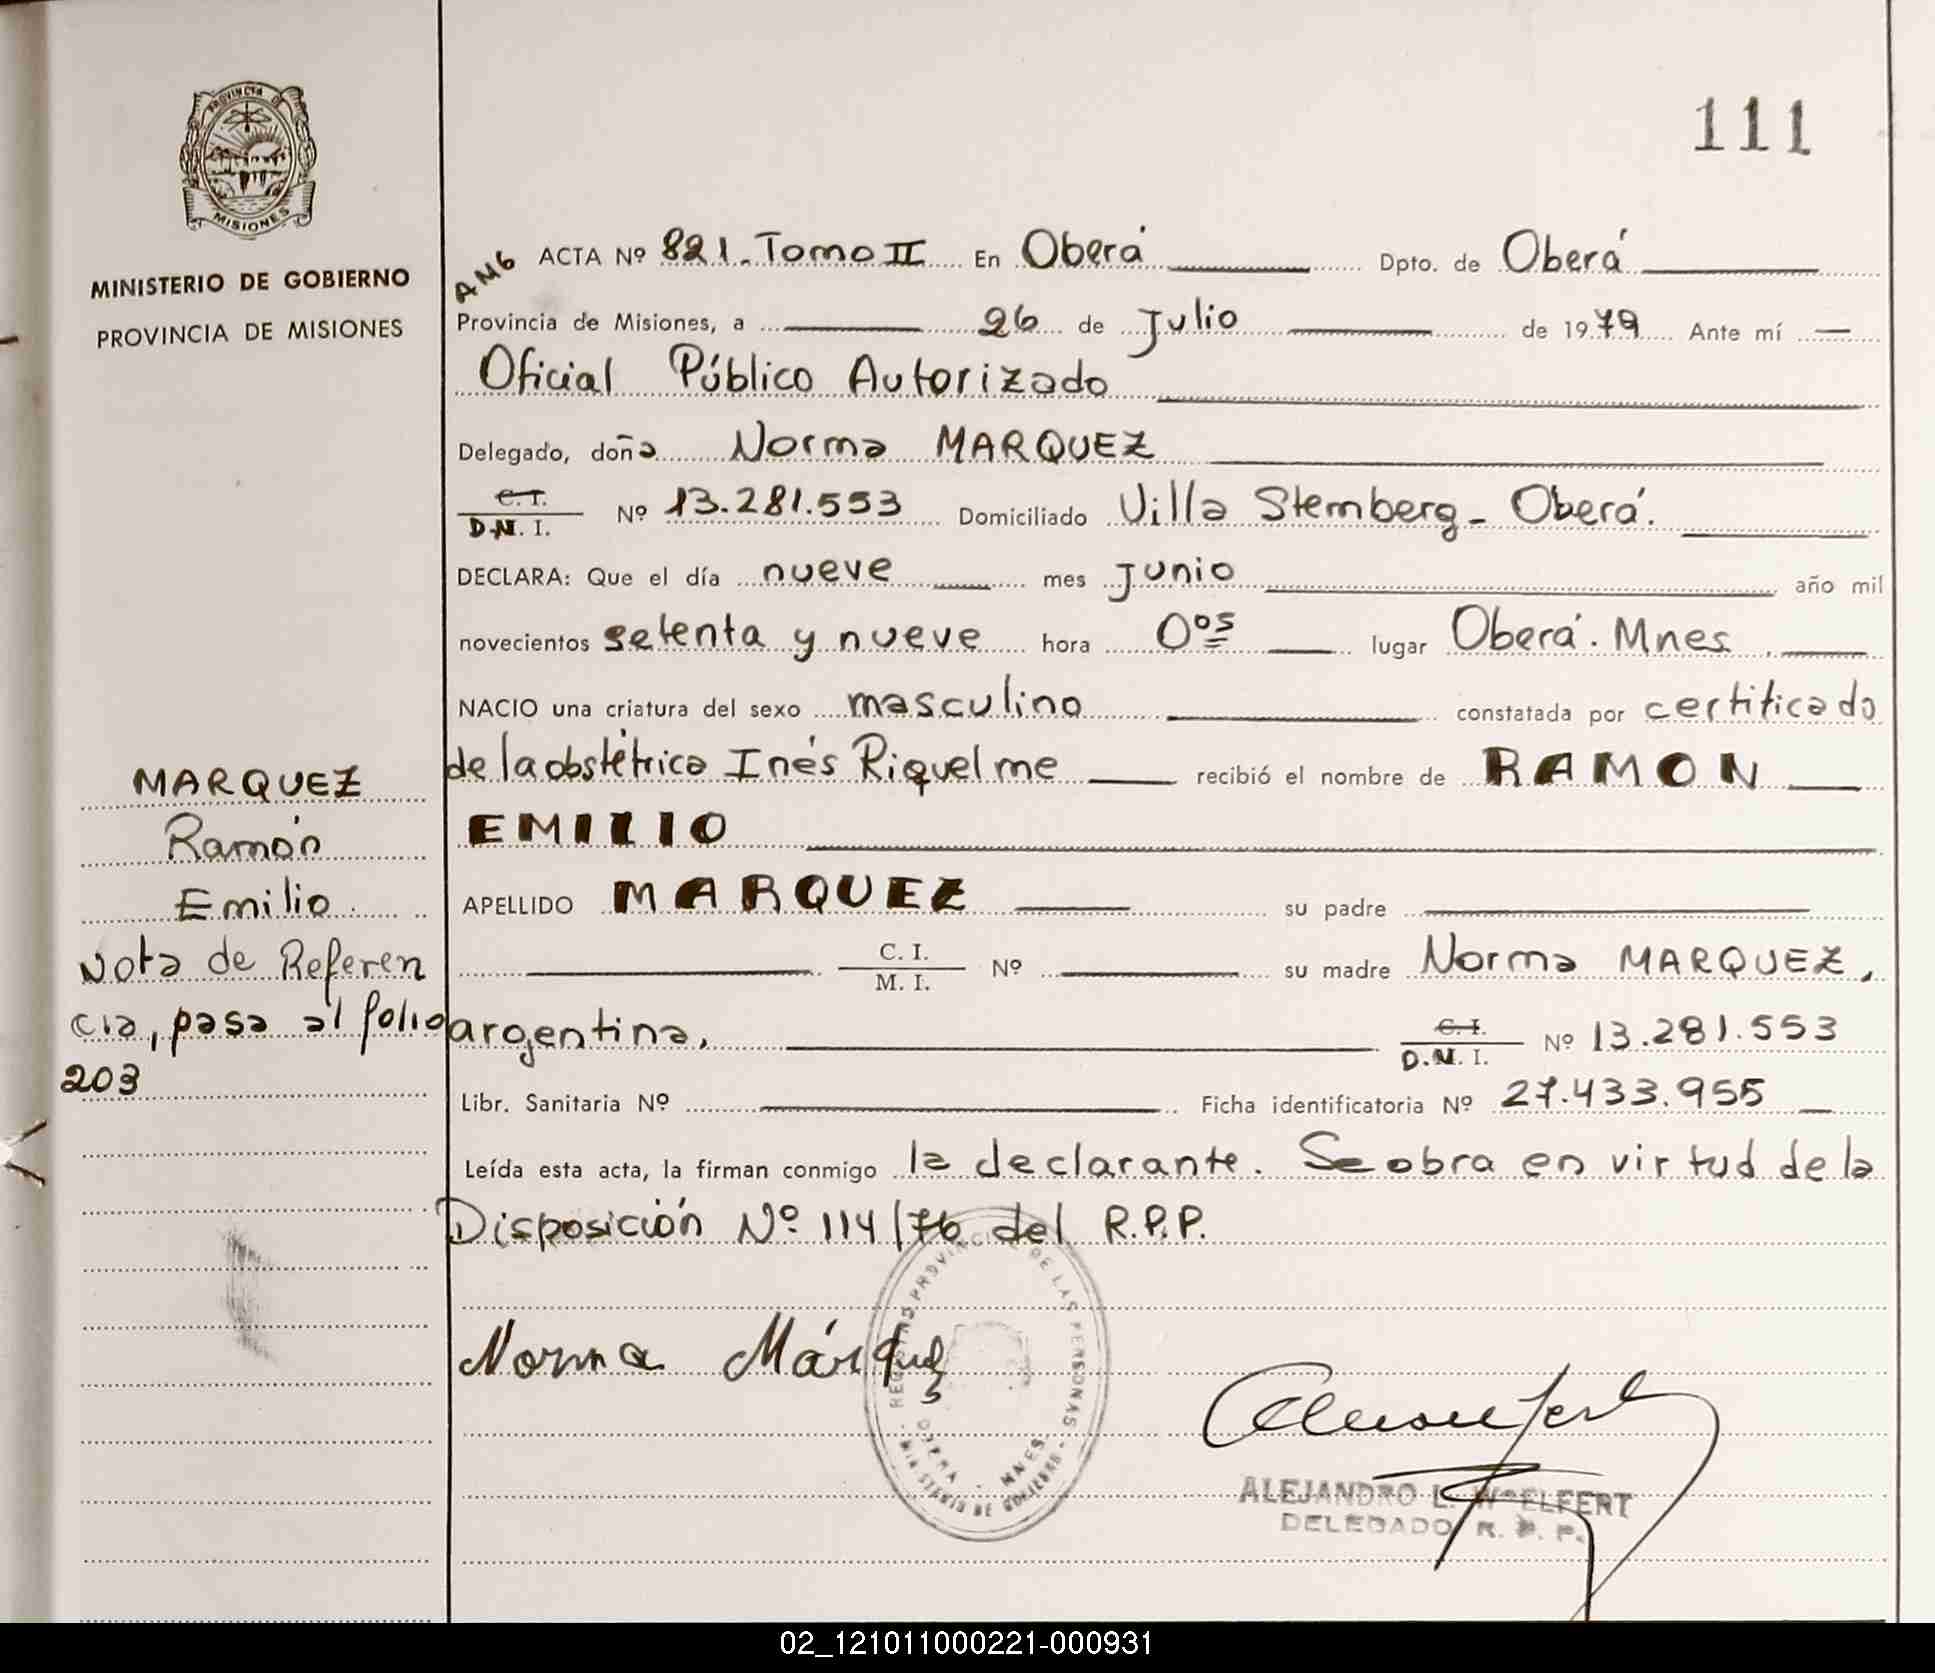 111
PROVINCIA DE
MISIONES
MINISTERIO DE GOBIERNO
PROVINCIA DE MISIONES
ACTA Nº 821. Tomo II En Oberá Dpto. de Oberá
Provincia de Misiones, a 26 de Julio de 1979 Ante mí
Oficial Público Autorizado
Delegado, doña Norma MARQUEZ
C. I.
D.N. I. Nº 13.281.553 Domiciliado Villa Stemberg - Oberá.
DECLARA: Que el día nueve mes Junio año mil
novecientos setenta y nueve hora 0os lugar Oberá. Mnes
NACIO una criatura del sexo masculino constatada por certificado
de la obstétrica Inés Riquelme recibió el nombre de RAMON
EMILIO
APELLIDO MARQUEZ su padre
C. I.
M. I. Nº su madre Norma MARQUEZ,
argentina, C. I.
D.N. I. Nº 13.281.553
Libr. Sanitaria Nº Ficha identificatoria Nº 27.433.955
Leída esta acta, la firman conmigo la declarante. Se obra en virtud de la
Disposición Nº 114/76 del R.P.P.
MARQUEZ
Ramón
Emilio
Nota de Referen
cia, pasa al folio
203
Norma Márquez
REGISTRO PROVINCIAL DE LAS PERSONAS
MINISTERIO DE GOBIERNO
MNES
ALEJANDRO L. WOELFERT
DELEGADO R. P. P.
02_121011000221-000931